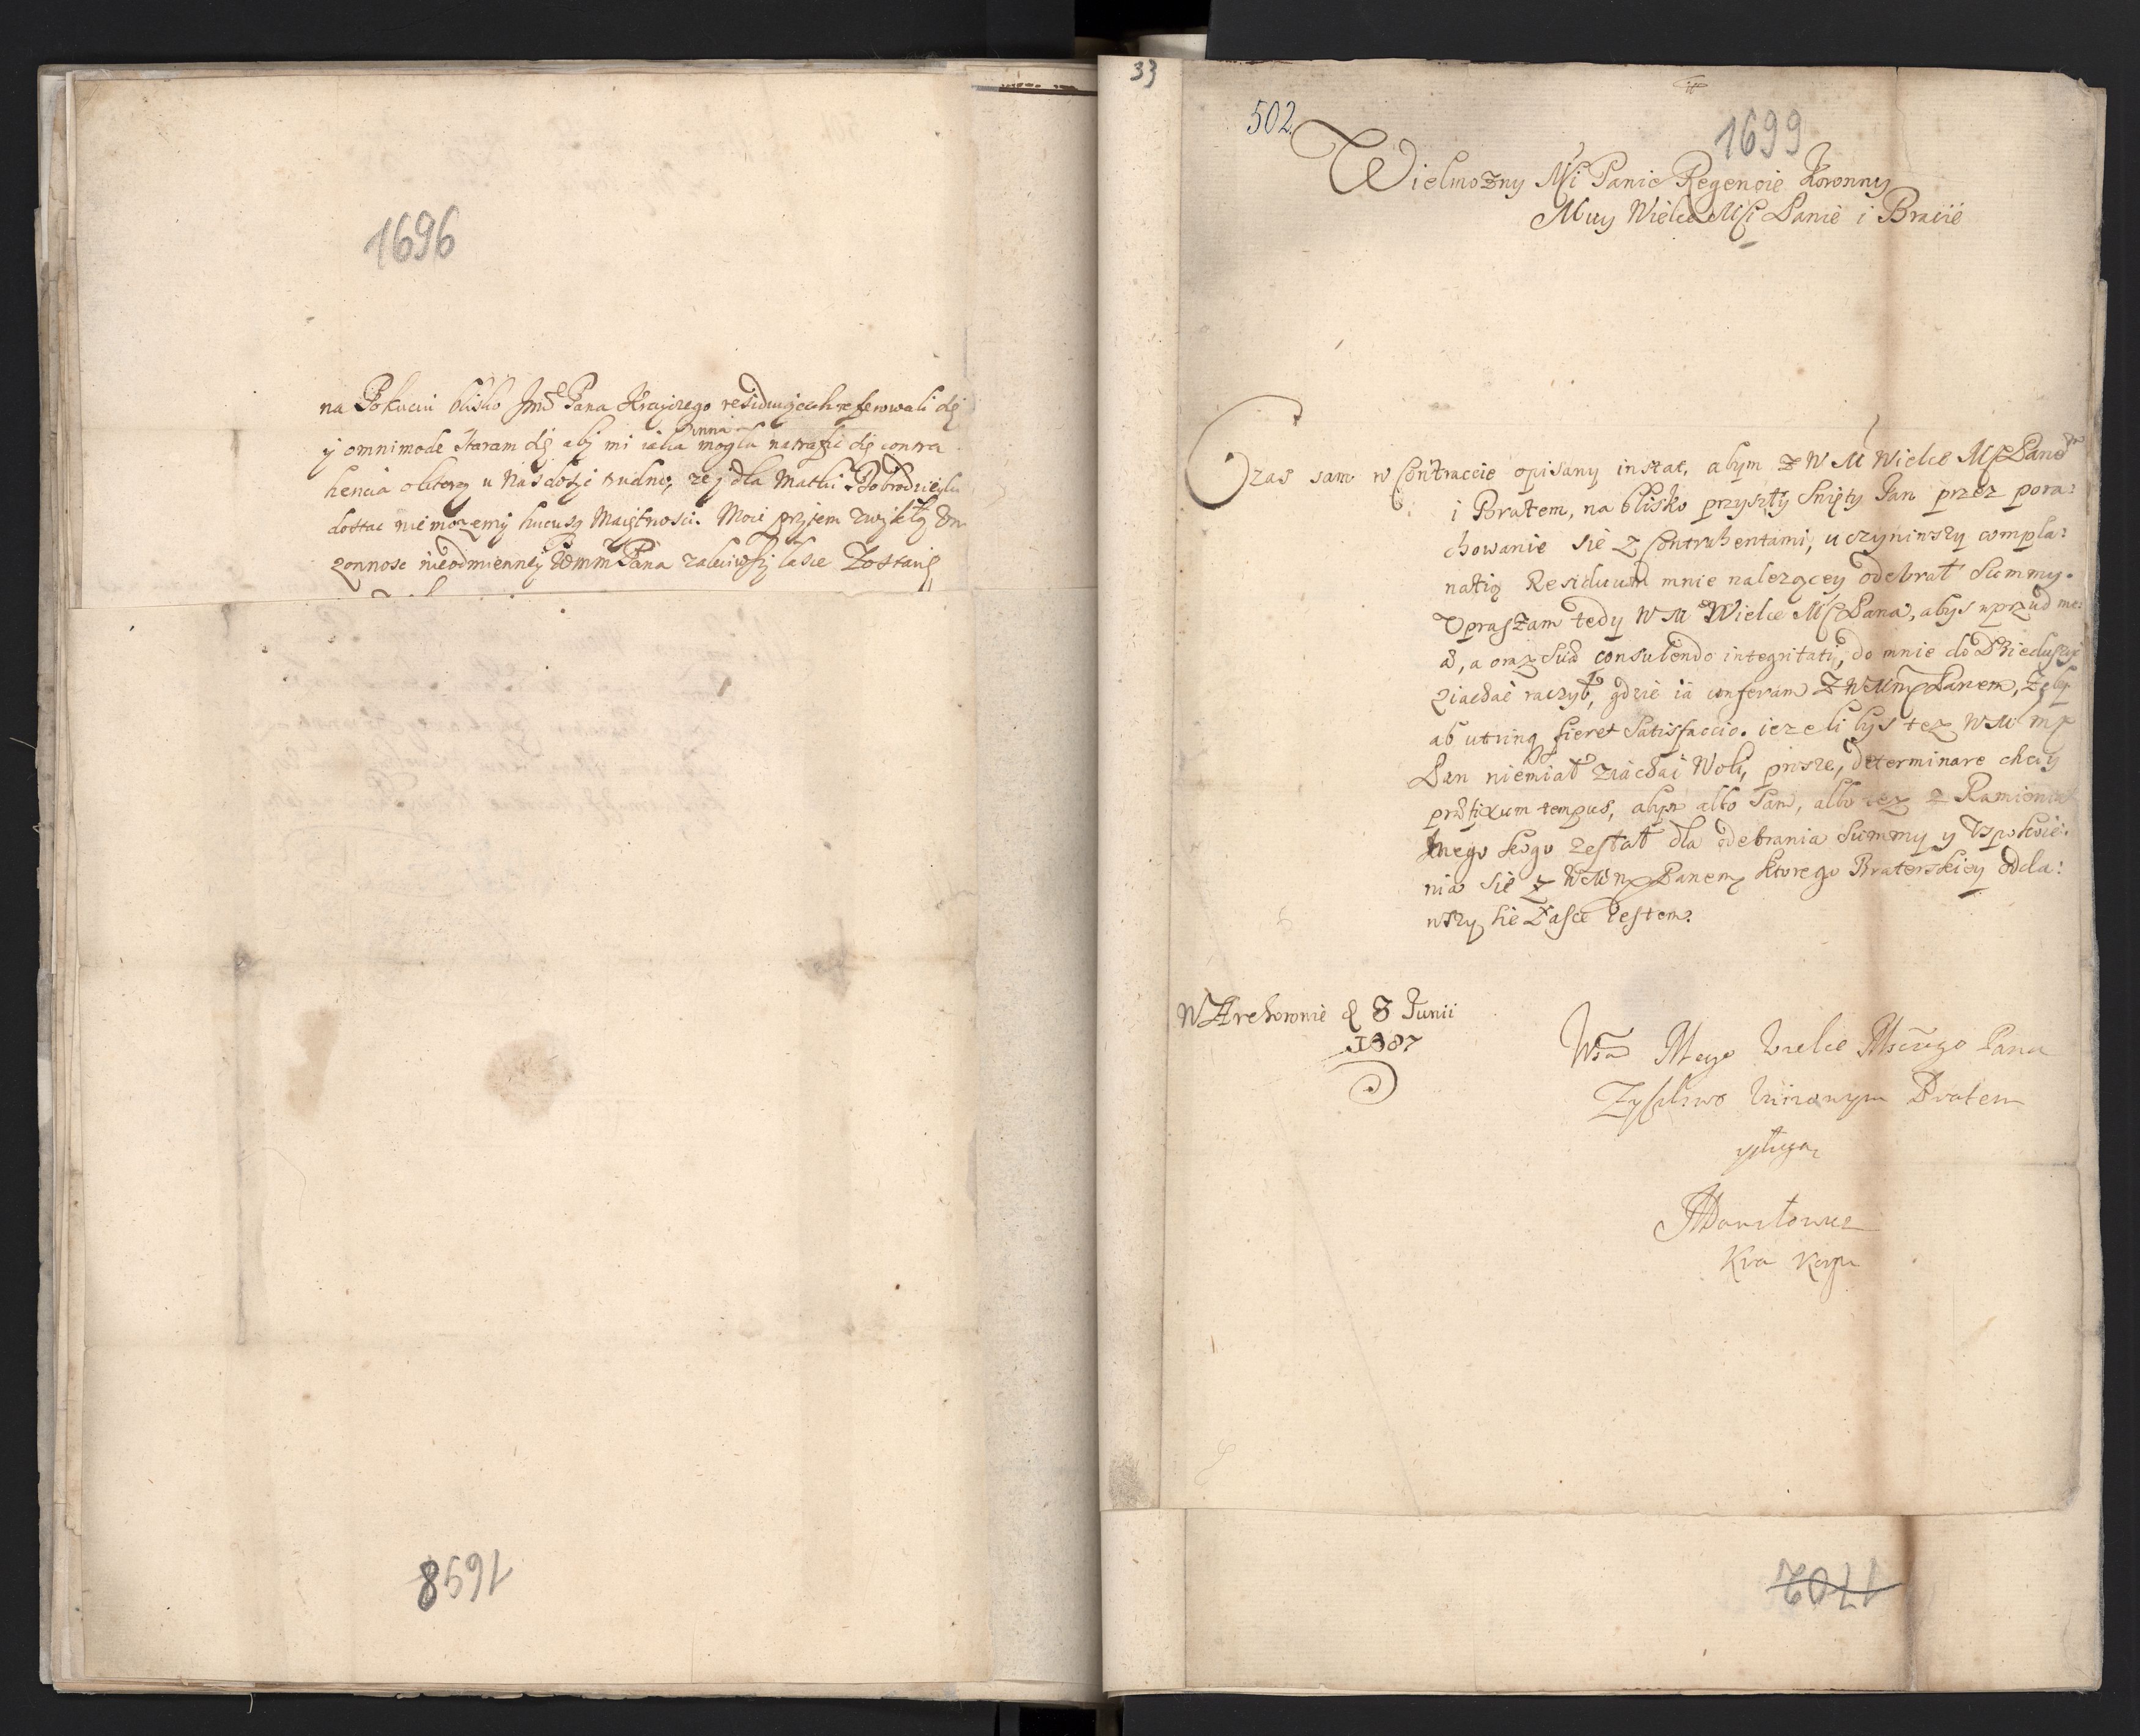 1696
na Pokuciu blisko Jmć Pana Krayczego residuiących referowali się
y omnimode staram się aby mi iaka inna mogła natrafić się contra
hencia o ktorą u nas dosyć trudno, że y dla Matki Dobrodzieyki
dostac niemożemy hucusq Maiętnosci. Moię przytem zwykłą
zonnosc nieodmienney WMM Pana zaleciwszy łasce Zostaię
1698
33
502.
1699
Wielmozny Mći Panie Regencie Koronny
Muy Wielce Mći Panie i Bracie
Czas sam w Contraccie opisany instat, abym z W M Wielce Mć Panem
i Bratem, na blisko przyszły Swięty Jan przez pora:
chowanie sie z Contrahentami, uczyniwszy compla:
natią Residuum mnie nalezącey odebrał Summy.
Upraszam tedy W M Wielce Mć Pana, abys wprzud me:
æ, a oraz suæ consulendo integritati, do mnie do Dzieduszyc
ziachać raczył, gdzie ia conferam z WMM Panem, zeby
ab utrinq fieret Satisfaccio. iezeli bys tez WM M
Pan niemiał ziachać Woli, proszę, determinare chciey
præfixum tempus, abym albo sam, albo tez z Ramienia
mego kogo zesłał dla odebrania Summy y Uspokoie:
nia sie z WMM Panem, ktorego Braterskiey odda:
wszy sie Łasce Iestem.
W Arehowie d 8 Junii
1687
Wm Mego Wielce Mśćiwego Pana
Zyczliwo Uniżonym Bratem
y sługą
1702